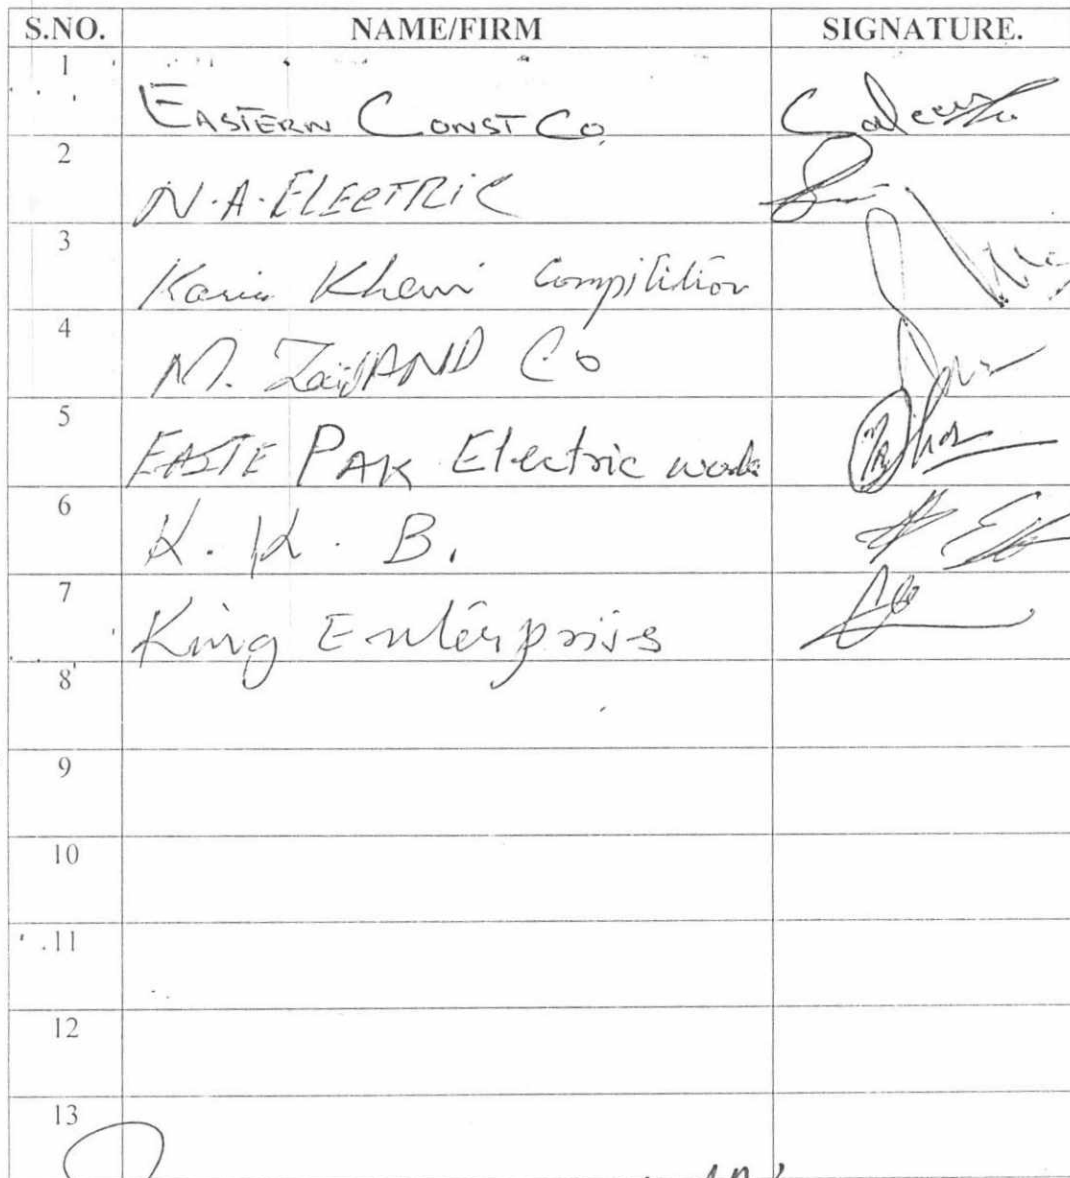 S.NO. NAME/FIRM SIGNATURE.
1 EASTERN CONST CO. Saleem
2 N.A. ELECTRIC
3 Khani Compitition
4 M. Zaid AND Co
5 EASTE PAK Electric works
6 K. K. B.
7 King Enterprises
8
9
10
11
12
13